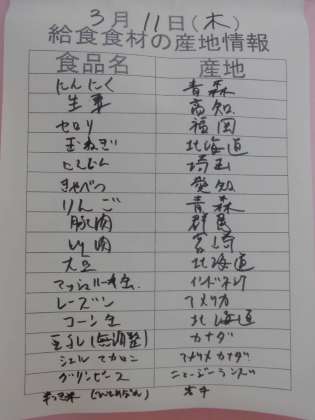 3月11日(木)
給食食材の産地情報
食品名 産地
にんにく 青森
生姜 高知
セロリ 福岡
玉ねぎ 北海道
にんじん 埼玉
きゃべつ 愛知
りんご 青森
豚肉 群馬
鶏肉 宮崎
大豆 北海道
マッシュルーム缶 インドネシア
レーズン アメリカ
コーン缶 北海道
豆乳(無調整) カナダ
シェルマカロニ アメリカ カナダ
グリンピース ニュージーランド
岩手